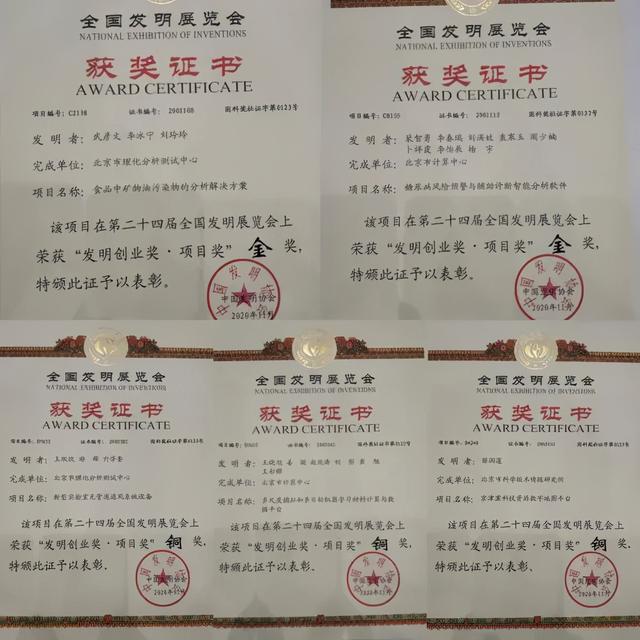 全国发明展览会
NATIONAL EXHIBITION OF INVENTIONS
获奖证书
AWARD CERTIFICATE
证书编号: 2903168
国科奖社证字第0123号
发明者: 武彦文 李冰宁 刘玲玲
完成单位: 北京市理化分析测试中心
项目名称: 食品中矿物油污染物的分析解决方案
该项目在第二十四届全国发明展览会上
荣获“发明创业奖·项目奖”金奖,
特颁此证予以表彰。
中国发明协会
2020年11月
全国发明展览会
NATIONAL EXHIBITION OF INVENTIONS
获奖证书
AWARD CERTIFICATE
项目编号: C0155
证书编号: 2903113
国科奖社证字第0123号
发明者:
完成单位: 北京市计算中心
项目名称: 糖尿病风险预警与辅助诊断智能分析软件
该项目在第二十四届全国发明展览会上
荣获“发明创业奖·项目奖”金奖,
特颁此证予以表彰。
中国发明协会
2020年11月
全国发明展览会
NATIONAL EXHIBITION OF INVENTIONS
获奖证书
AWARD CERTIFICATE
项目编号:
证书编号:
国科奖社证字第0123号
发明者:
完成单位: 北京市理化分析测试中心
项目名称: 新型实验室无管道通风系统设备
该项目在第二十四届全国发明展览会上
荣获“发明创业奖·项目奖”铜奖,
特颁此证予以表彰。
中国发明协会
全国发明展览会
NATIONAL EXHIBITION OF INVENTIONS
获奖证书
AWARD CERTIFICATE
项目编号:
证书编号:
国科奖社证字第0123号
发明者:
完成单位: 北京市计算中心
项目名称:
数平台
该项目在第二十四届全国发明展览会上
荣获“发明创业奖·项目奖”铜奖,
特颁此证予以表彰。
中国发明协会
2020年11月
全国发明展览会
NATIONAL EXHIBITION OF INVENTIONS
获奖证书
AWARD CERTIFICATE
项目编号:
证书编号:
国科奖社证字第0123号
发明者:
完成单位: 北京市科学技术情报研究所
项目名称: 京津冀科技资源数字地图平台
该项目在第二十四届全国发明展览会上
荣获“发明创业奖·项目奖”铜奖,
特颁此证予以表彰。
中国发明协会
2020年11月